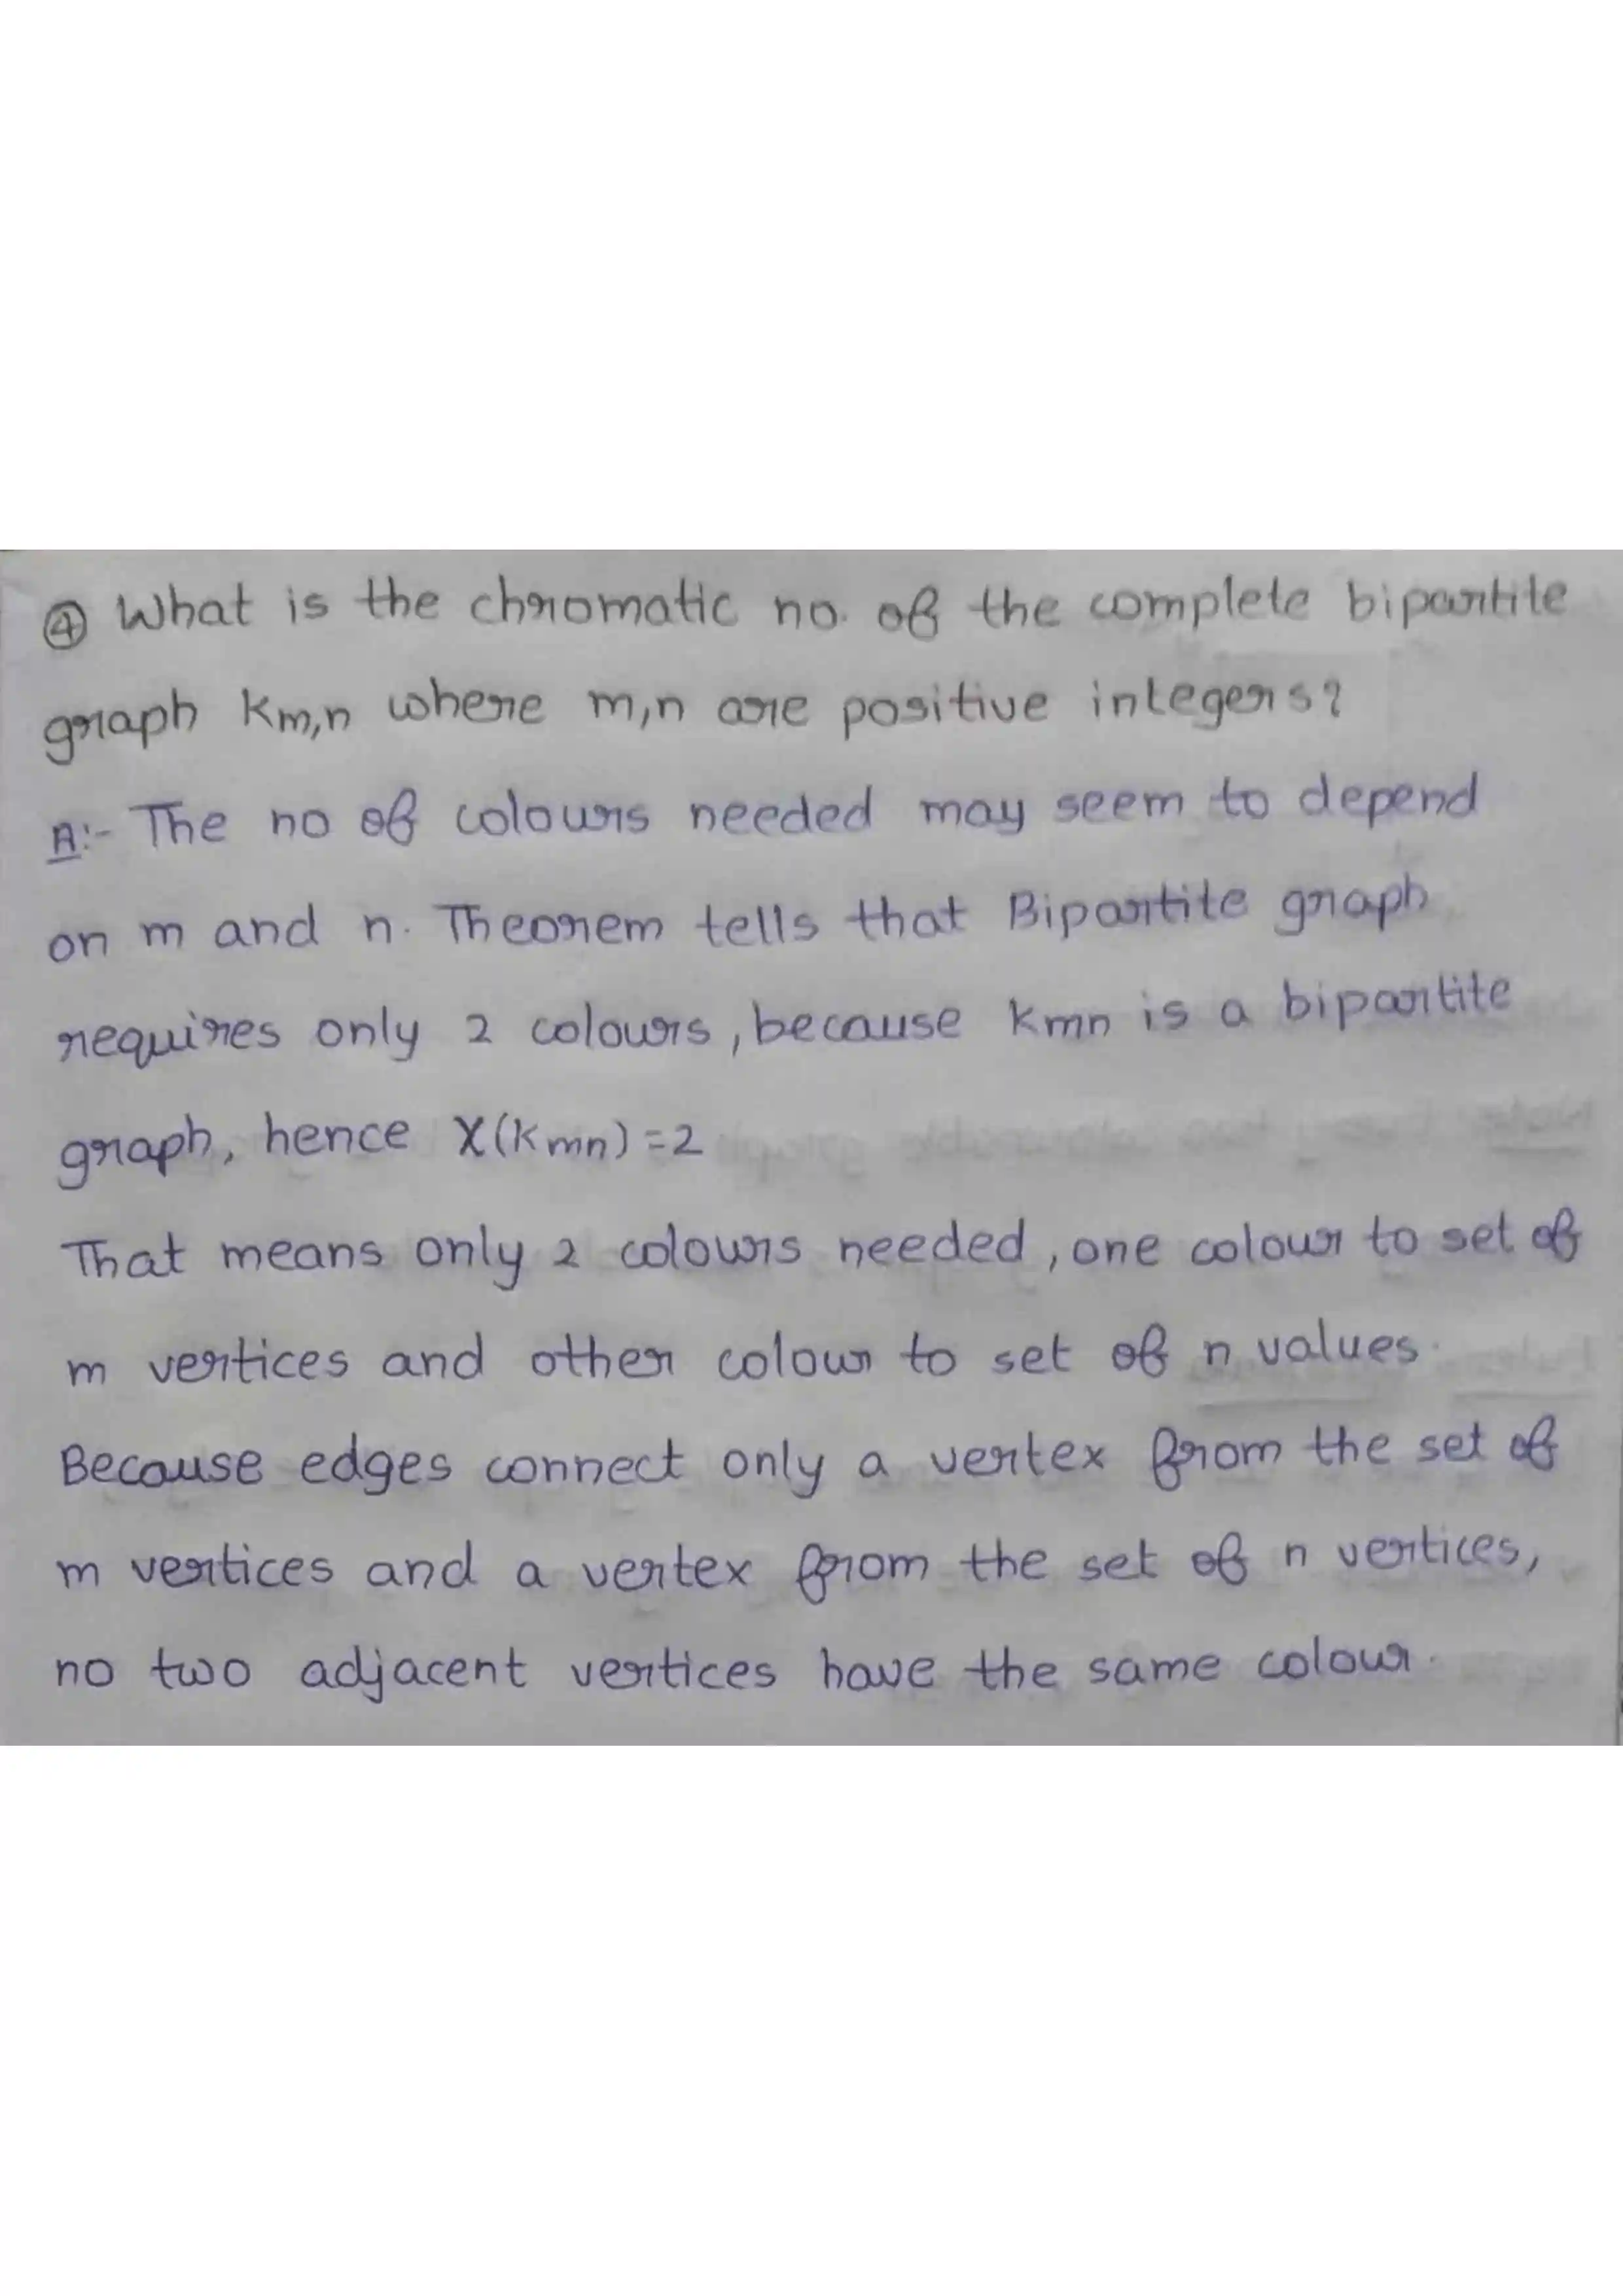 ④ What is the chromatic no. of the complete bipartite
graph Km,n where m,n are positive integers?
A:- The no of colours needed may seem to depend
on m and n. Theorem tells that Bipartite graph
requires only 2 colours, because Kmn is a bipartite
graph, hence X(Kmn)=2
That means only 2 colours needed, one colour to set of
m vertices and other colour to set of n values.
Because edges connect only a vertex from the set of
m vertices and a vertex from the set of n vertices,
no two adjacent vertices have the same colour.